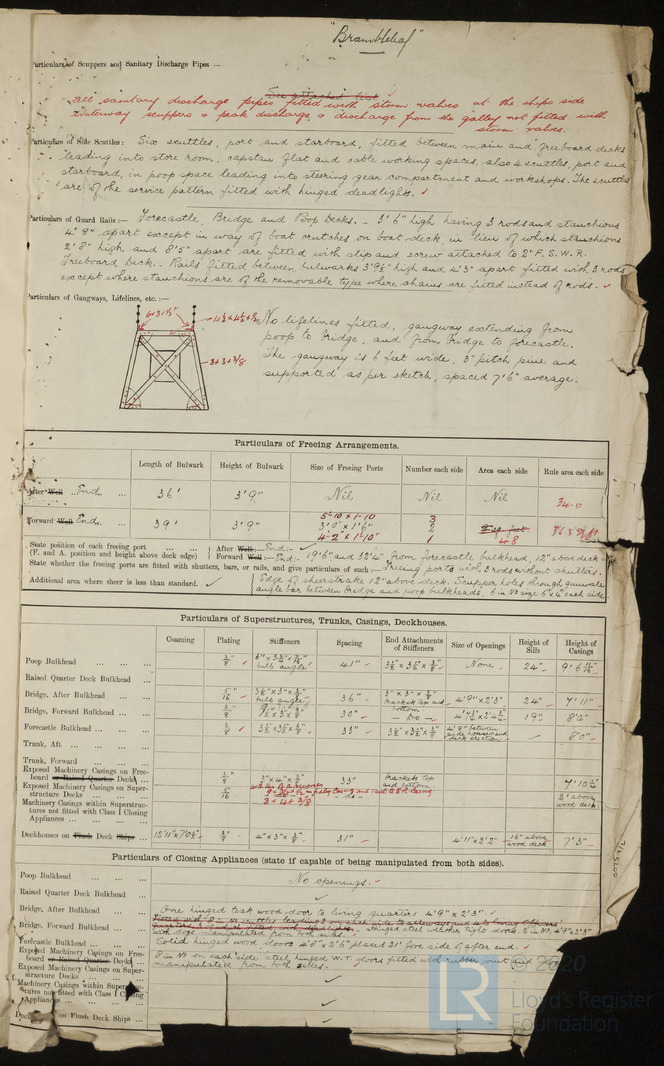 "Brambleleaf"
Particulars of Scuppers and Sanitary Discharge Pipes —
See attached list
All sanitary discharge pipes fitted with storm valves at the ships side
Waterway scuppers & peak discharge & discharge from the galley not fitted with
storm valves.
Particulars of Side Scuttles: Six scuttles, port and starboard, fitted between main and freeboard decks
leading into store room, capstan flat and cable working spaces, also 4 scuttles, port and
starboard, in poop space leading into steering gear compartment and workshops. The scuttles
are of the service pattern fitted with hinged deadlights.
Particulars of Guard Rails :— Forecastle, Bridge and Poop Decks. – 3' 6" high having 3 rods and stanchions
4' 9" apart except in way of boat crutches on boat deck, in lieu of which stanchions
2' 8" high and 8'5" apart are fitted with slip and screw attached to 2" F.S.W.R.
Freeboard Deck. – Rails fitted between bulwarks 3'9½" high and 4'3" apart fitted with 3 rods
except where stanchions are of the removable type where chains are fitted instead of rods.
Particulars of Gangways, Lifelines, etc. :—
No lifelines fitted, gangway extending from
poop to bridge, and from bridge to forecastle.
The gangway is 6 feet wide, 3" pitch pine and
supported as per sketch, spaced 7'6" average.
3 + 3 + 3/8
Particulars of Freeing Arrangements.
Length of Bulwark Height of Bulwark Size of Freeing Ports Number each side Area each side Rule area each side
After Well End 36' 3'9" Nil Nil Nil 34.0
5'-10 x 1'-10 3
Forward Well End 39' 3'9" 3'0" x 1'6" 2
4'-2" x 1'-10" 1 48
State position of each freeing port
(F. and A. position and height above deck edge)
After Well :— End :-
Forward Well :— End :- 19'6" and 32'4" from forecastle bulkhead, 12" above deck
State whether the freeing ports are fitted with shutters, bars, or rails, and give particulars of such :— Freeing ports with 3 rods without shutters.
Additional area where sheer is less than standard. Edge of sheerstrake 12" above deck. Scupper holes through gunwale
angle bar between bridge and poop bulkheads. 6 in No size 6" x 4" each side
Particulars of Superstructures, Trunks, Casings, Deckhouses.
Coaming Plating Stiffeners Spacing End Attachments of Stiffeners Size of Openings Height of Sills Height of Casings
Poop Bulkhead bulb angle 41" None 24"
Raised Quarter Deck Bulkhead
Bridge, After Bulkhead 5/16 bulb angle 36" brackets top and bottom 4'9" x 2'3" 24" 7'11"
Bridge, Forward Bulkhead 30" — Do — 19" 8'0"
Forecastle Bulkhead 33" 4'9" between side house and deck erection 8'0"
Trunk, Aft
Trunk, Forward
Exposed Machinery Casings on Free-
board or Raised Quarter Decks 3" x 4" x 3/8" 33" brackets top and bottom.
Exposed Machinery Casings on Super-
structure Decks 5/16 3 + 4 + 3/8 2' above wood deck
Machinery Casings within Superstruc-
tures not fitted with Class I Closing
Appliances
Deckhouses on Flush Deck Ships 4" x 3" x 3/8" 31" 4'11" x 2'2" 16" above wood deck 7'3"
Particulars of Closing Appliances (state if capable of being manipulated from both sides).
Poop Bulkhead No openings.
Raised Quarter Deck Bulkhead
Bridge, After Bulkhead One hinged teak wood door to living quarters 4'9" x 2'3"
Bridge, Forward Bulkhead Hinged steel weather tight doors, 2 in No, 4'9" x 2'3"
with dogs manipulated from both sides.
Forecastle Bulkhead Solid hinged wood doors 4'6" x 2'6" placed 21" fore side of after end.
Exposed Machinery Casings on Free-
board or Raised Quarter Decks 3 in No on each side steel hinged W.T. doors fitted with rubber joint and dogs
manipulated from both sides.
Exposed Machinery Casings on Super-
structure Decks
Machinery Casings within Superstruc-
tures not fitted with Class I Closing
Appliances
Deckhouses on Flush Deck Ships
0075 2/2
© 2020
LR
Lloyd's Register
Foundation